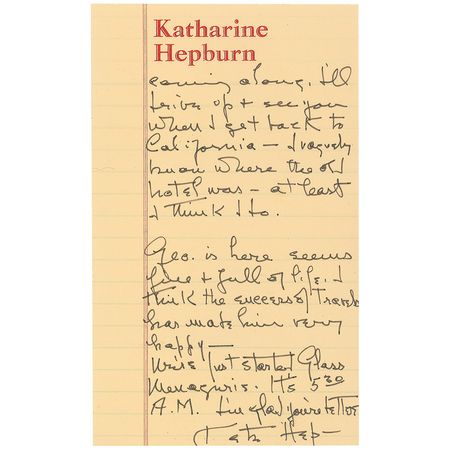 Katharine
Hepburn
coming along. I'll
drive up + see you
when I get back to
California — I vaguely
know where the old
hotel was — at least
I think I do.
Geo. is here seems
fine + full of life. I
think the success of Travels
has made him very
happy —
We've just started Glass
Menagerie. It's 5 30
A.M. I'm glad you're better
Kate Hep —